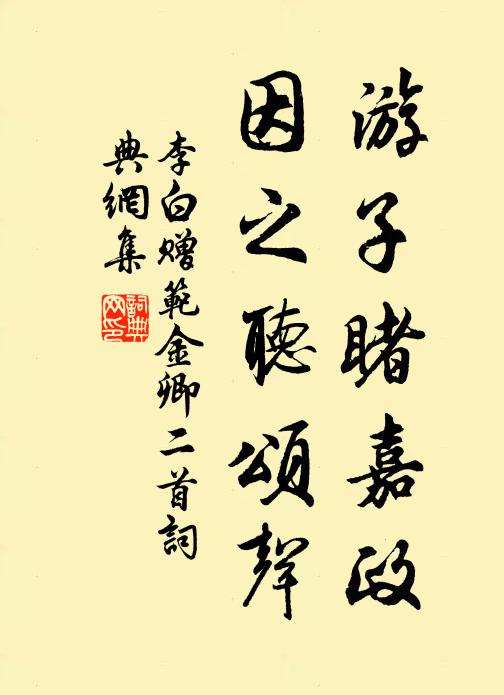 游子睹嘉政
因之聽頌聲
李白贈範金卿二首詞
典網集
詞典網印